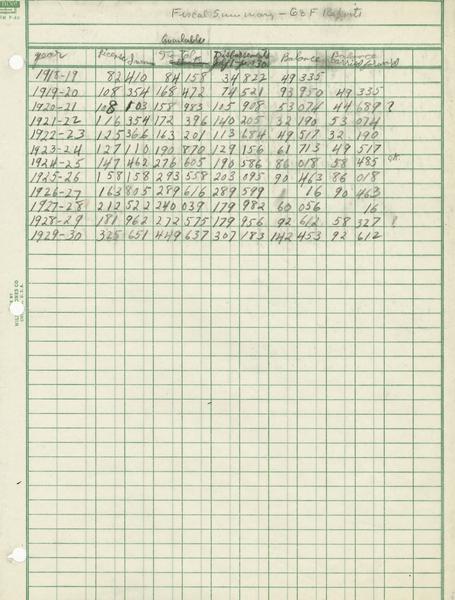 Fiscal Summary - G & F Reports
Available
year License Total Disbursements Balance Balance
from July 1 - June 30 carried forward
1918-19 82 410 84 158 34 822 49 335
1919-20 108 354 168 472 74 521 93 950 49 335
1920-21 108 103 158 983 105 908 53 074 44 689 ?
1921-22 116 354 172 396 140 205 32 190 53 074
1922-23 125 366 163 201 113 684 49 517 32 190
1923-24 127 110 190 870 129 156 61 713 49 517
1924-25 147 462 276 605 190 586 86 018 58 485 ok.
1925-26 158 158 293 558 203 095 90 463 86 018
1926-27 163 805 289 616 289 599 16 90 463
1927-28 212 522 240 039 179 982 60 056 16
1928-29 181 962 272 575 179 956 92 612 58 327 ?
1929-30 325 651 449 637 307 183 142 453 92 612